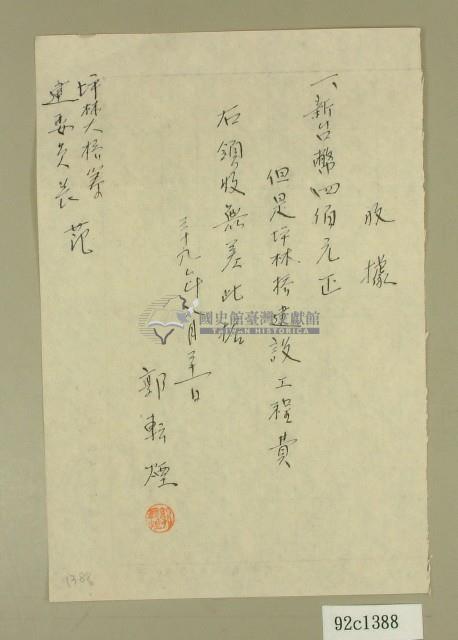 收據
一、新台幣四佰元正
但是坪林橋建設工程費
右領收無差此據
三十九年 月 日
郭転
坪林大橋籌
建委員長 范
國史館臺灣文獻館
TAIWAN HISTORICA
1388
92c1388